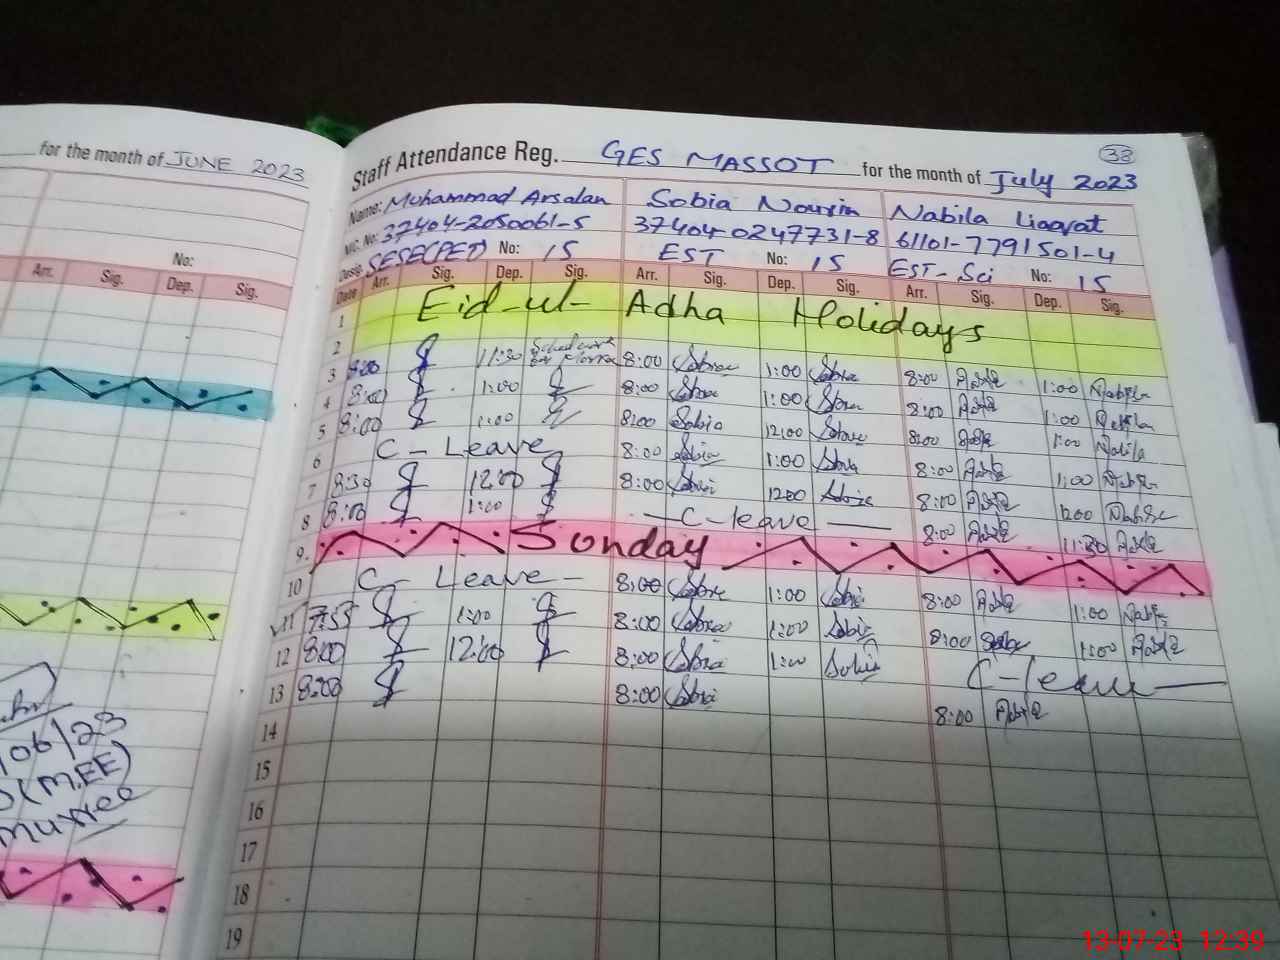 for the month of JUNE 2023
No:
Arr. Sig. Dep. Sig.
06/23
(M.EE)
Murree
38
Staff Attendance Reg. GES MASSOT for the month of July 2023
Name: Muhammad Arsalan Sobia Nourin Nabila Liaqat
NIC. No: 37404-2050061-5 37404-0247731-8 61101-7791501-4
Desig. SESE(PET) No: 15 EST No: 15 EST-Sci No: 15
Date Arr. Sig. Dep. Sig. Arr. Sig. Dep. Sig. Arr. Sig. Dep. Sig.
1 Eid-ul-Adha Holidays
2
3 8:00 11:30 8:00 Sobia 1:00 Sobia 8:00 1:00 Nabila
4 8:00 1:00 8:00 Sobia 1:00 Sobia 8:00 1:00 Nabila
5 8:00 1:00 8:00 Sobia 12:00 Sobia 8:00 1:00 Nabila
6 C-Leave 8:00 Sobia 1:00 Sobia 8:00 1:00 Nabila
7 8:30 12:00 8:00 Sobia 1200 Sobia 8:00 1200 Nabila
8 8:00 1:00 -C-leave- 8:00 11:30
9. Sunday
10 C-Leave- 8:00 Sobia 1:00 Sobia 8:00 1:00 Nabila
11 7:55 1:00 8:00 Sobia 1:00 Sobia 8:00 1:00
12 8:00 12:00 8:00 Sobia 1:00 Sobia C-leave
13 8:00 8:00 Sobia 8:00
14
15
16
17
18
19
13-07-23 12:39